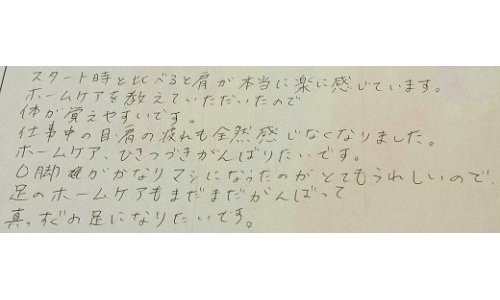 スタート時と比べると肩が本当に楽に感じています。
ホームケアを教えていただいたので
体が覚えやすいです。
仕事中の目・肩の疲れも全然感じなくなりました。
ホームケア、ひきつづきがんばりたいです。
O脚がかなりマシになったのがとてもうれしいので
足のホームケアもまだまだがんばって
真っすぐの足になりたいです。